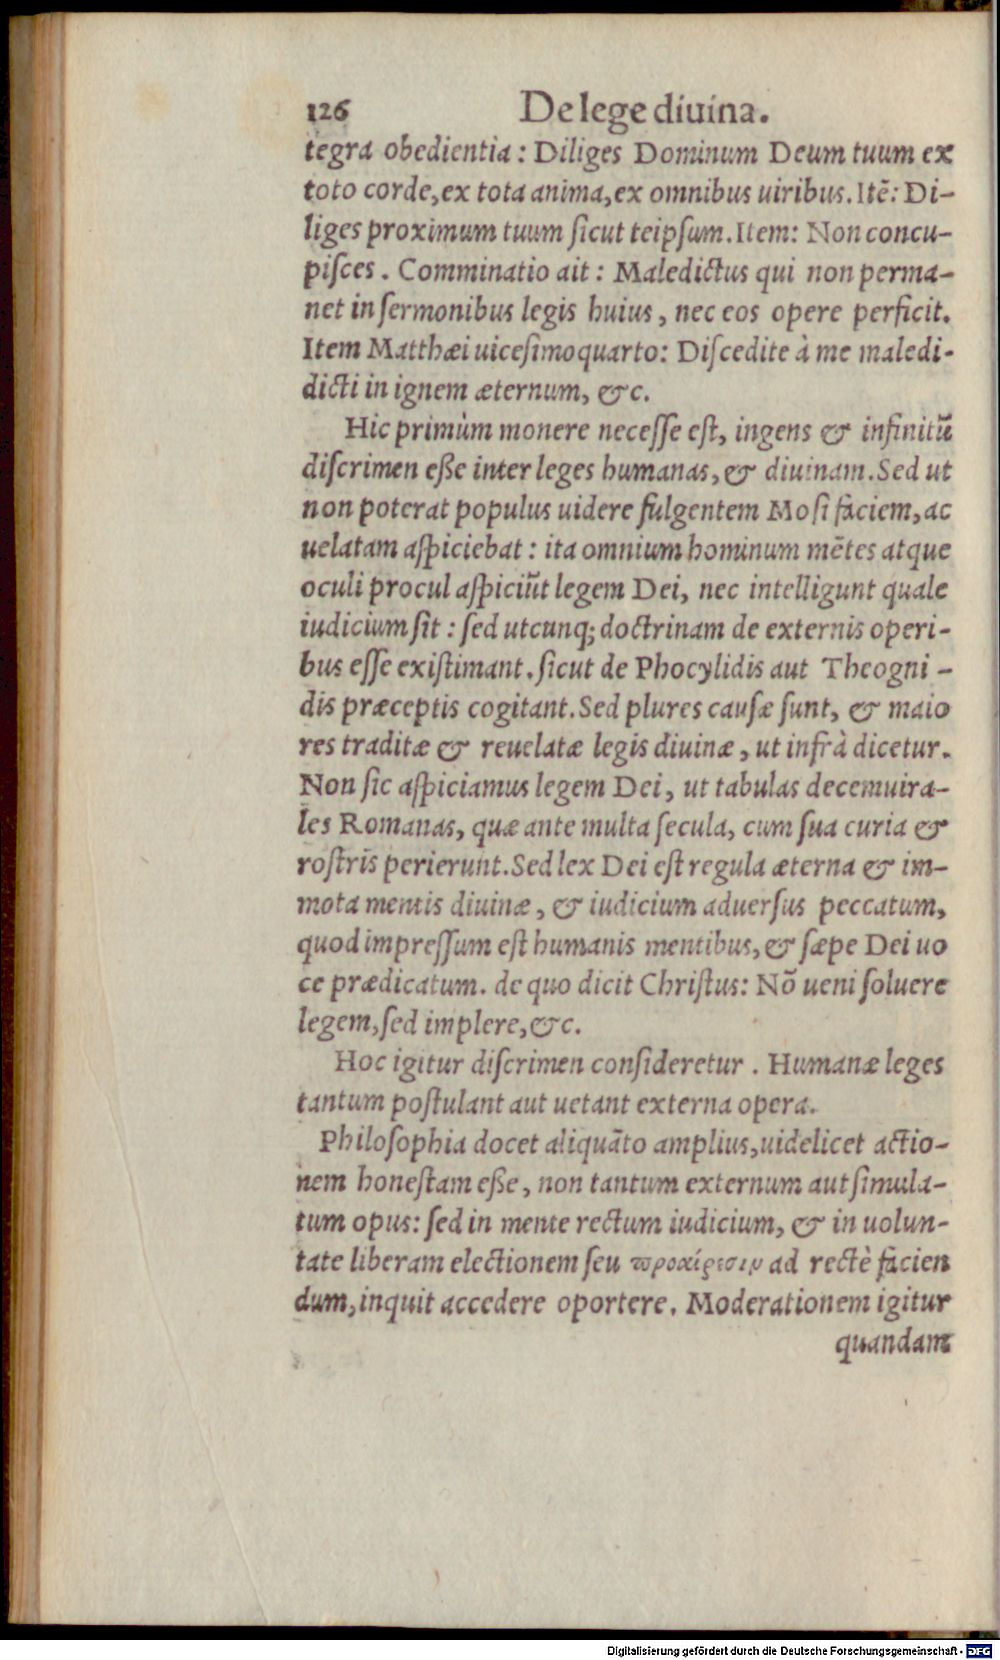 126 De lege diuina.
tegra obedientia : Diliges Dominum Deum tuum ex
toto corde, ex tota anima, ex omnibus uiribus. Itẽ: Di-
liges proximum tuum ſicut teipſum. Item: Non concu-
piſces . Comminatio ait : Maledictus qui non perma-
net in ſermonibus legis huius , nec eos opere perficit.
Item Matthæi uiceſimoquarto: Diſcedite à me maledi-
dicti in ignem æternum, &c.
Hic primùm monere neceſſe eſt, ingens & infinitũ
diſcrimen eße inter leges humanas, & diuinam. Sed ut
non poterat populus uidere fulgentem Moſi faciem, ac
uelatam aſpiciebat : ita omnium hominum mẽtes atque
oculi procul aſpiciũt legem Dei, nec intelligunt quale
iudicium ſit : ſed utcunq; doctrinam de externis operi-
bus eſſe exiſtimant. ſicut de Phocylidis aut Theogni -
dis præceptis cogitant. Sed plures cauſæ ſunt, & maio
res traditæ & reuelatæ legis diuinæ , ut infrà dicetur.
Non ſic aſpiciamus legem Dei, ut tabulas decemuira-
les Romanas, quæ ante multa ſecula, cum ſua curia &
roſtris perierunt. Sed lex Dei eſt regula æterna & im-
mota mentis diuinæ , & iudicium aduerſus peccatum,
quod impreſſum eſt humanis mentibus, & ſæpe Dei uo
ce prædicatum. de quo dicit Chriſtus: Nõ ueni ſoluere
legem, ſed implere, &c.
Hoc igitur diſcrimen conſideretur . Humanæ leges
tantum poſtulant aut uetant externa opera.
Philoſophia docet aliquãto amplius, uidelicet actio-
nem honeſtam eße , non tantum externum aut ſimula-
tum opus: ſed in mente rectum iudicium, & in uolun-
tate liberam electionem ſeu προαίρεσιν ad rectè facien
dum, inquit accedere oportere. Moderationem igitur
quandam
Digitalisierung gefördert durch die Deutsche Forschungsgemeinschaft - DFG